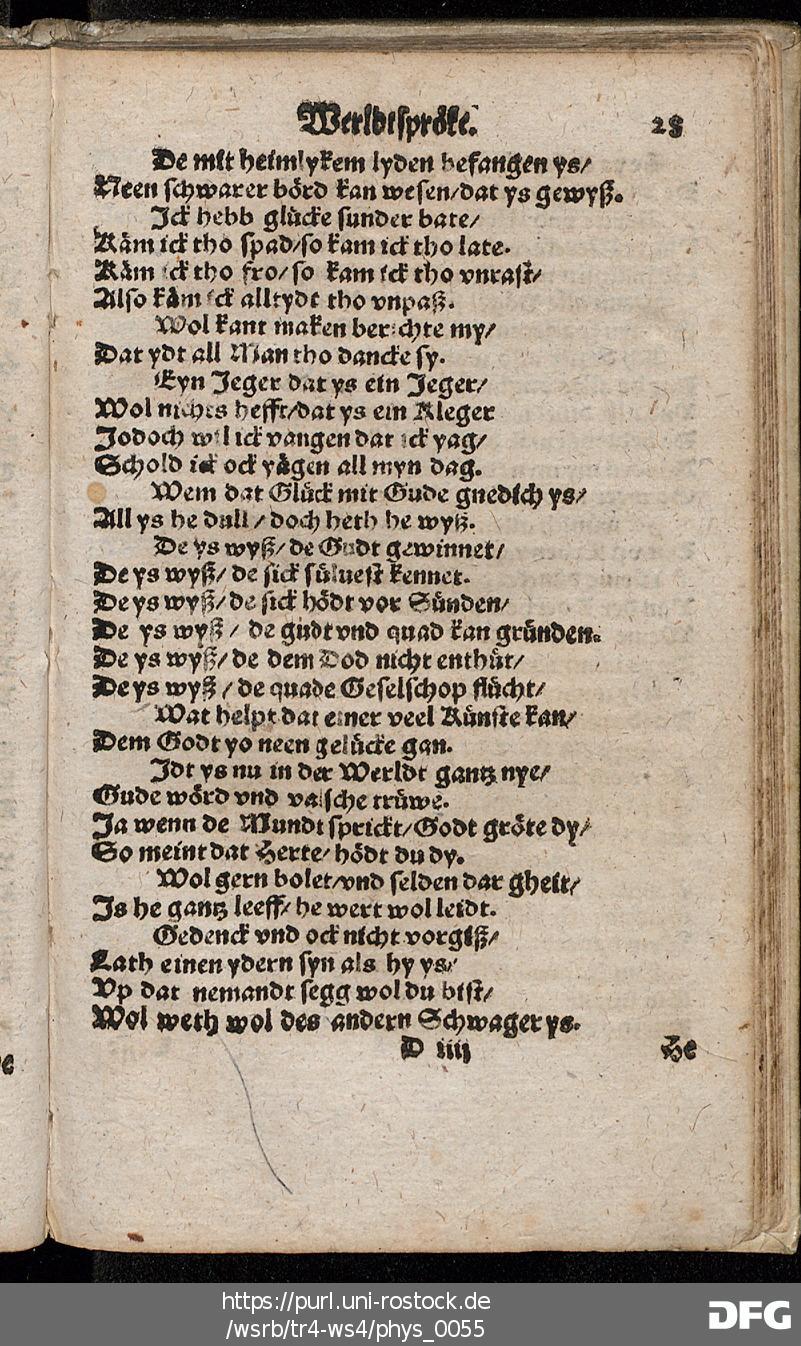 Werldtspröke. 28
De mit heimlykem lyden befangen ys/
Neen schwarer börd kan wesen/dat ys gewyß.
Ick hebb glücke sunder bate/
Käm ick tho spad/so kam ick tho late.
Käm ick tho fro/so kam ick tho vnrast/
Also käm ick alltydt tho vnpaß.
Wol kant maken berichte my/
Dat ydt all Man tho dancke sy.
Eyn Jeger dat ys ein Jeger/
Wol nichts hefft/dat ys ein Kleger
Jodoch wil ick vangen dat ick yag/
Schold ick ock yägen all myn dag.
Wem dat Glück mit Gude gnedich ys/
All ys he dull/doch heth he wyß.
De ys wyß/de Gudt gewinnet/
De ys wyß/de sick süluest kennet.
De ys wyß/de sick hödt vor Sünden/
De ys wyß/de gudt vnd quad kan gründen.
De ys wyß/de dem Dod nicht enthüt/
De ys wyß/de quade Geselschop flücht/
Wat helpt dat einer veel Künste kan/
Dem Godt yo neen gelücke gan.
Idt ys nu in der Werldt gantz nye/
Gude wörd vnd valsche trüwe.
Ja wenn de Mundt sprickt/Godt gröte dy/
So meint dat Herte/hödt du dy.
Wol gern bolet/vnd selden dar gheit/
Is he gantz leeff/he wert wol leidt.
Gedenck vnd ock nicht vorgiß/
Lath einen ydern syn als hy ys/
Vp dat nemandt segg wol du bist/
Wol weth wol des andern Schwager ys.
D iiij He
e
https://purl.uni-rostock.de
/wsrb/tr4-ws4/phys_0055
DFG